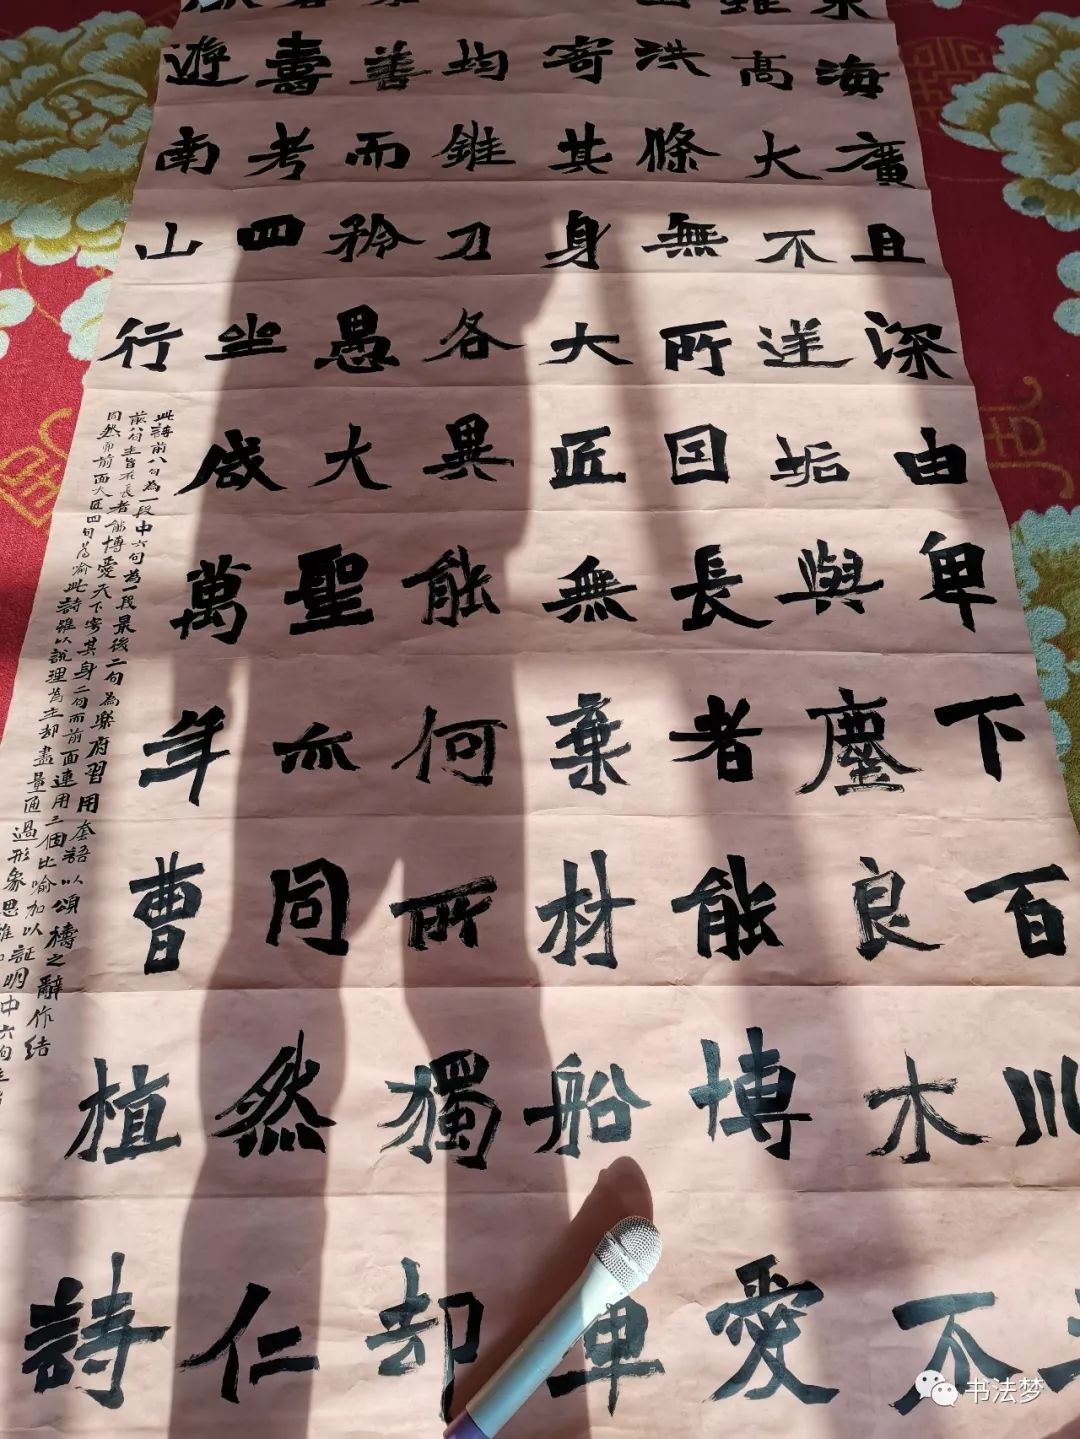 海廣且深由卑下百川
雖高大不逆垢與塵良木不
洪條無所囙長者能博愛
寄其身大匠無棄材船車
均錐刀各異能何所獨却
善而矜愚大聖亦同然仁
壽考四坐咸萬年曹植詩
遊南山行
此詩前八句為一段中六句為一段最後二句為樂府習用套語以頌禱之辭作結
前八句主旨在長者能博愛天下寄其身二句而前面連用三個比喻加以証明中六句主旨
同然而前面大匠四句為喻此詩雖以說理為主却盡量通過形象思維
书法梦